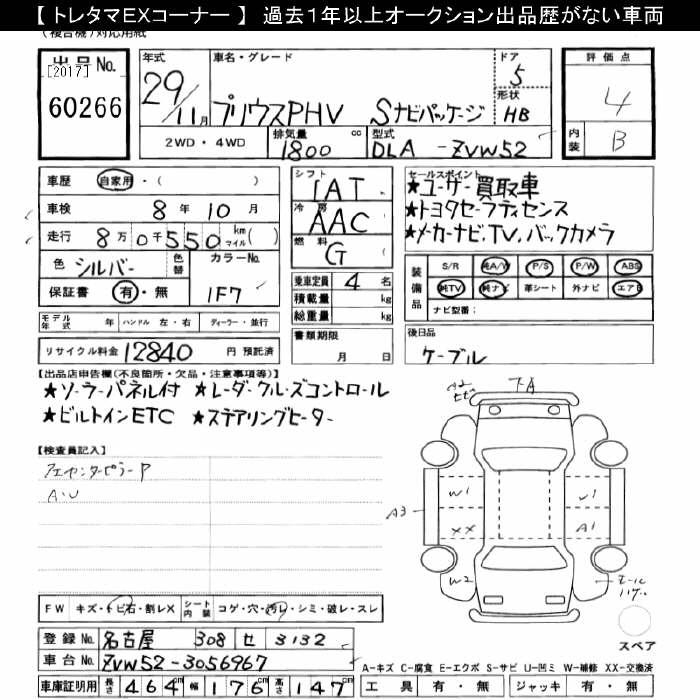 【 トレタマEXコーナー 】 過去1年以上オークション出品歴がない車両
(複合機)対応用紙
出品No. [2017] 60266
年式 29/11月
車名・グレード プリウスPHV Sナビパッケージ
ドア 5
形状 HB
評価点 4
内装 B
2WD・4WD
排気量 1800 cc
型式 DLA -ZVW52
車歴 自家用・( )
車検 8年10月
走行 8万0千550 km マイル( )
色 シルバー 色替
カラーNo. 1F7
保証書 有・無
シフト IAT
冷房 AAC
燃料 G
乗車定員 4 名
積載量 kg
総重量 kg
セールスポイント
★ユーザー買取車
★トヨタセーフティセンス
★メーカーナビ.TV.バックカメラ
装備品 S/R 純A/W P/S P/W ABS
純TV 純ナビ 革シート 外ナビ エアB
ナビ型番:
モデル年式 年 ハンドル 左・右 ディーラー・並行
リサイクル料金 12840 円 預託済
書類期限 月 日
後日品 ケーブル
【出品店申告欄(不良箇所・欠品・注意事項等)】
★ソーラーパネル付 ★レーダークルーズコントロール
★ビルトインETC ★ステアリングヒーター
【検査員記入】
フェンセンターピラーP
A・U
A2
FA
A3
W1
U1
XX
A1
W2
スペア
FW キズ・トビ石・割レX シート内装 コゲ・穴・汚レ・シミ・破レ・スレ
登録No. 名古屋 308 せ 3132
車台No. ZVW52-3056967
A-キズ C-腐食 E-エクボ S-サビ U-凹ミ W-補修 XX-交換済
車庫証明用 長さ 464cm 幅 176cm 高さ 147cm
工具 有・無 ジャッキ 有・無